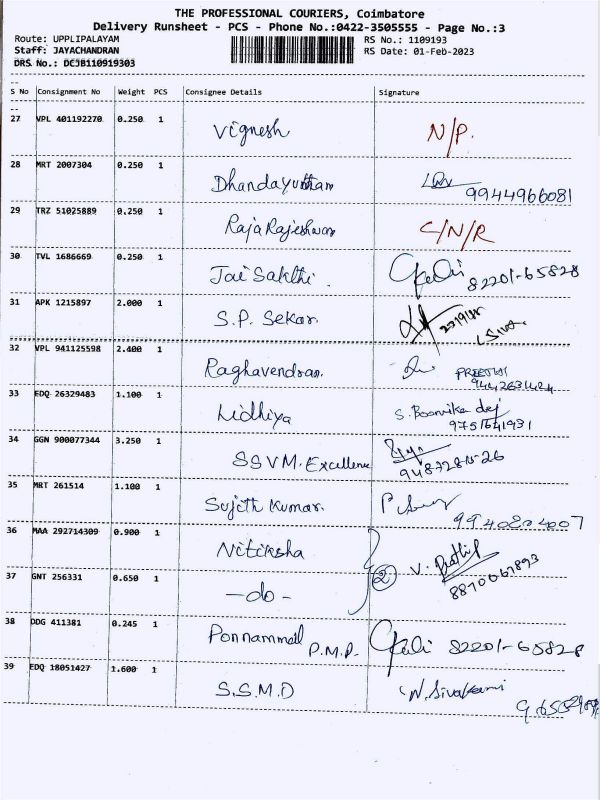 THE PROFESSIONAL COURIERS, Coimbatore
Delivery Runsheet - PCS - Phone No.:0422-3505555 - Page No.:3
Route: UPPLIPALAYAM RS No.: 1109193
Staff: JAYACHANDRAN RS Date: 01-Feb-2023
DRS No.: DCJB110919303
S No Consignment No Weight PCS Consignee Details Signature
27 VPL 401192270 0.250 1 Vignesh N/P.
28 MRT 2007304 0.250 1 Dhandayutham 9944966081
29 TRZ 51025889 0.250 1 RajaRajeshwari C/N/R
30 TVL 1686669 0.250 1 Jai Sakthi. 82201-65828
31 APK 1215897 2.000 1 S.P. Sekar.
32 VPL 941125598 2.400 1 Raghavendran. PREETHI
9442631424
33 EDQ 26329483 1.100 1 Lidhiya S. Boomika dej
9751641931
34 GGN 900077344 3.250 1 SSVM. Excellence
948728 15 26
35 MRT 261514 1.100 1 Sujith Kumar.
9940204007
36 MAA 292714309 0.900 1 Nitiksha
37 GNT 256331 0.650 1 -do- 2 V. Prathip
8870061893
38 DDG 411381 0.245 1 Ponnammal P.M.P. 82201-65828
39 EDQ 18051427 1.600 1 S.S.M.D N. Sivakami